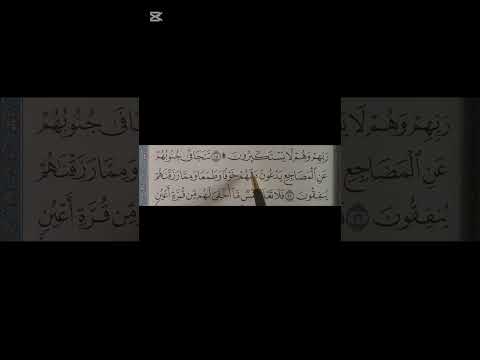 رَبِّهِمْ وَهُمْ لَا يَسْتَكْبِرُونَ ۩ ١٥ تَتَجَافَىٰ جُنُوبُهُمْ
عَنِ ٱلْمَضَاجِعِ يَدْعُونَ رَبَّهُمْ خَوْفًا وَطَمَعًا وَمِمَّا رَزَقْنَٰهُمْ
يُنفِقُونَ ١٦ فَلَا تَعْلَمُ نَفْسٌ مَّآ أُخْفِىَ لَهُم مِّن قُرَّةِ أَعْيُنٍ